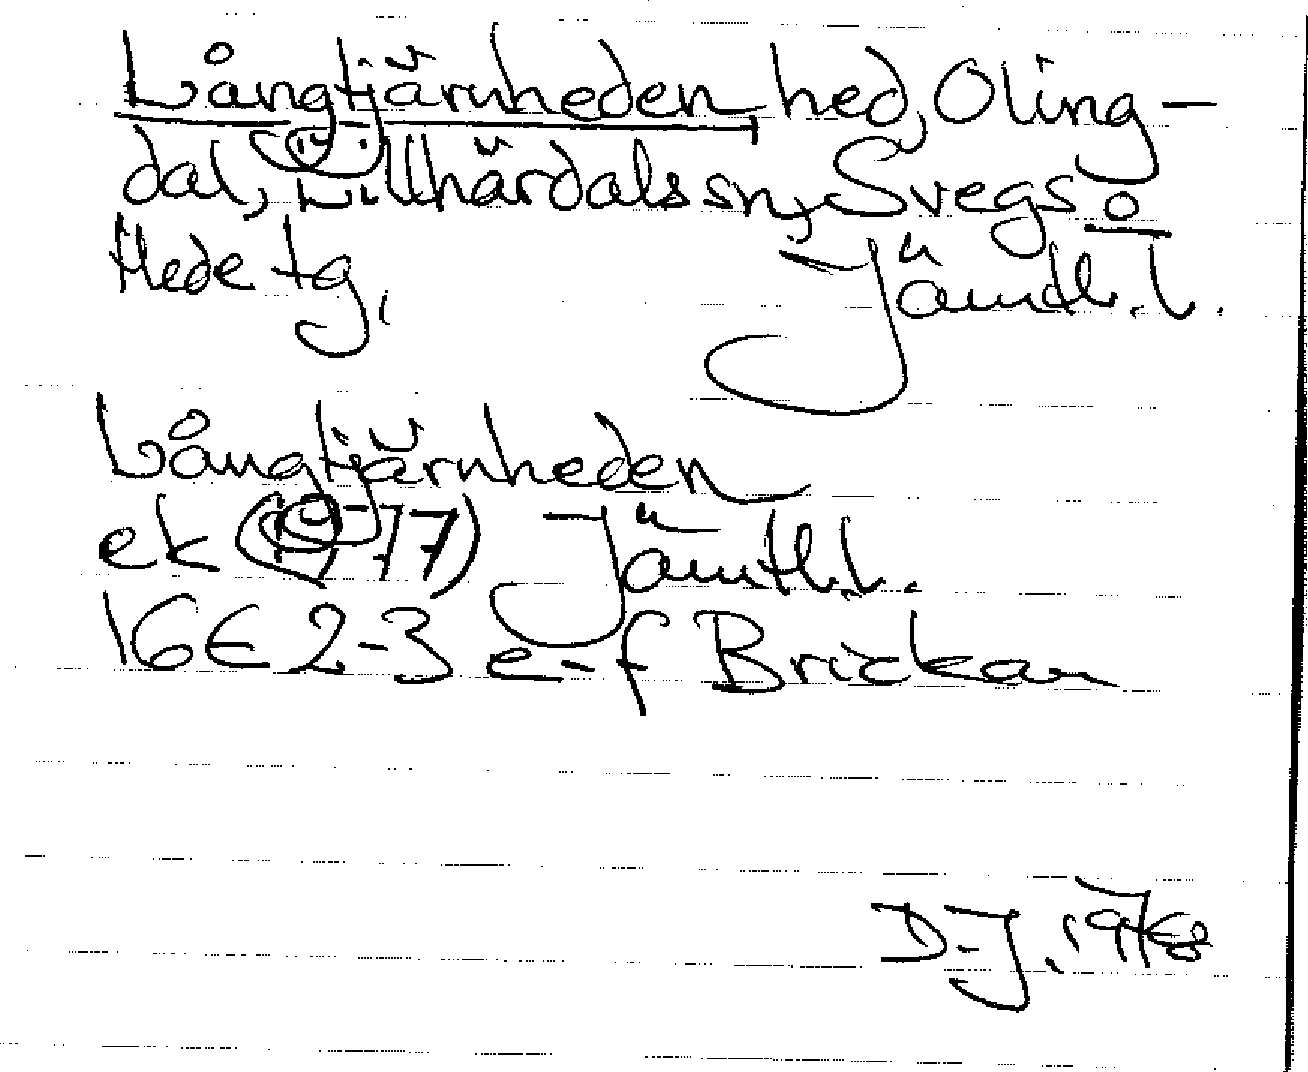 Långtjärnheden, hed, Oling-
dal, Lillhärdals sn, Svegs o
Hede tg, Jämtl. l.
Långtjärnheden
ek (1977) Jämtl.l.
16E 2-3 e-f Brickan
D-J.